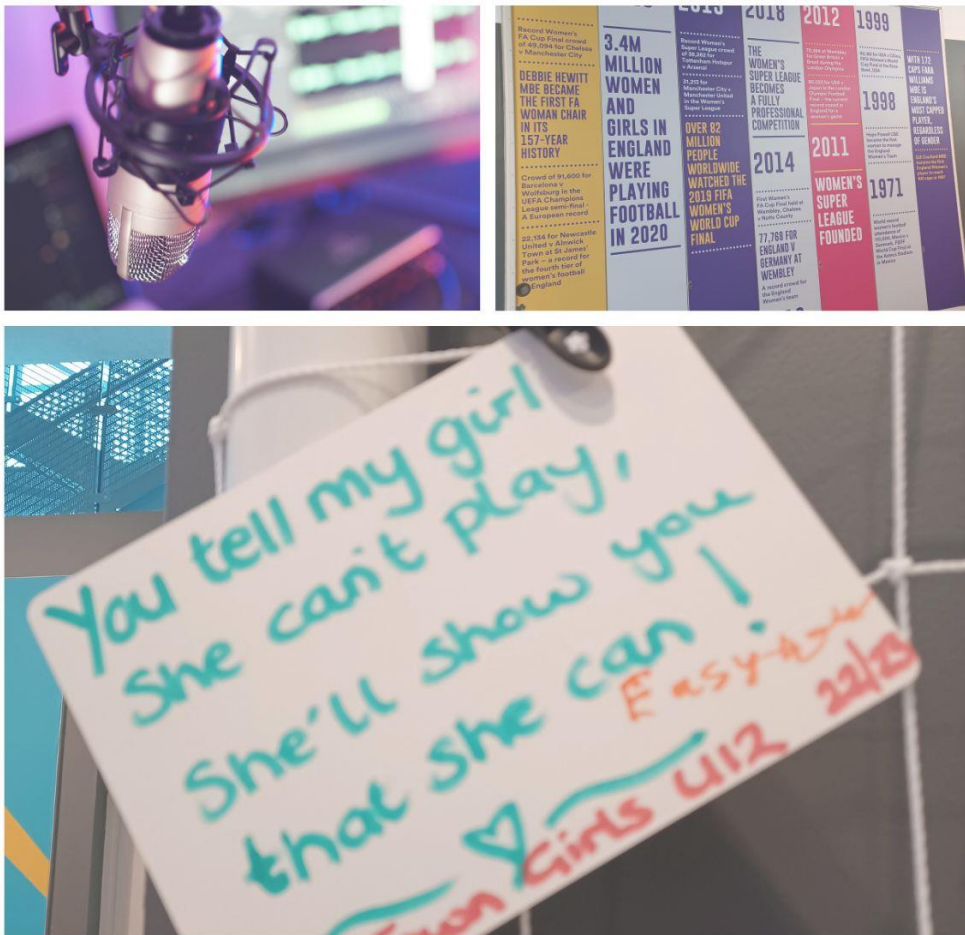 Record Women's
FA Cup Final crowd
of 49,094 for Chelsea
v Manchester City
DEBBIE HEWITT
MBE BECAME
THE FIRST FA
WOMAN CHAIR
IN ITS
157-YEAR
HISTORY
Crowd of 91,600 for
Barcelona v
Wolfsburg in the
UEFA Champions
League semi-final -
A European record
22,134 for Newcastle
United v Alnwick
Town at St James'
Park – a record for
the fourth tier of
women's football
England
3.4M
MILLION
WOMEN
AND
GIRLS IN
ENGLAND
WERE
PLAYING
FOOTBALL
IN 2020
2019
Record Women's
Super League crowd
of 38,262 for
Tottenham Hotspur
v Arsenal
31,213 for
Manchester City v
Manchester United
in the Women's
Super League
OVER 82
MILLION
PEOPLE
WORLDWIDE
WATCHED THE
2019 FIFA
WOMEN'S
WORLD CUP
FINAL
2018
THE
WOMEN'S
SUPER LEAGUE
BECOMES
A FULLY
PROFESSIONAL
COMPETITION
2014
First Women's
FA Cup Final held at
Wembley, Chelsea
v Notts County
77,768 FOR
ENGLAND V
GERMANY AT
WEMBLEY
A record crowd for
the England
Women's team
2012
2011
WOMEN'S
SUPER
LEAGUE
FOUNDED
1999
1998
Hope Powell CBE
became the first
woman to manage
the England
Women's Team
1971
World record
women's football
attendance of
WITH 172
CAPS FARA
WILLIAMS
MBE IS
ENGLAND'S
MOST CAPPED
PLAYER,
REGARDLESS
OF GENDER
You tell my girl
she can't play,
She'll show you
that she can!
Easy
Town Girls U12 22/23